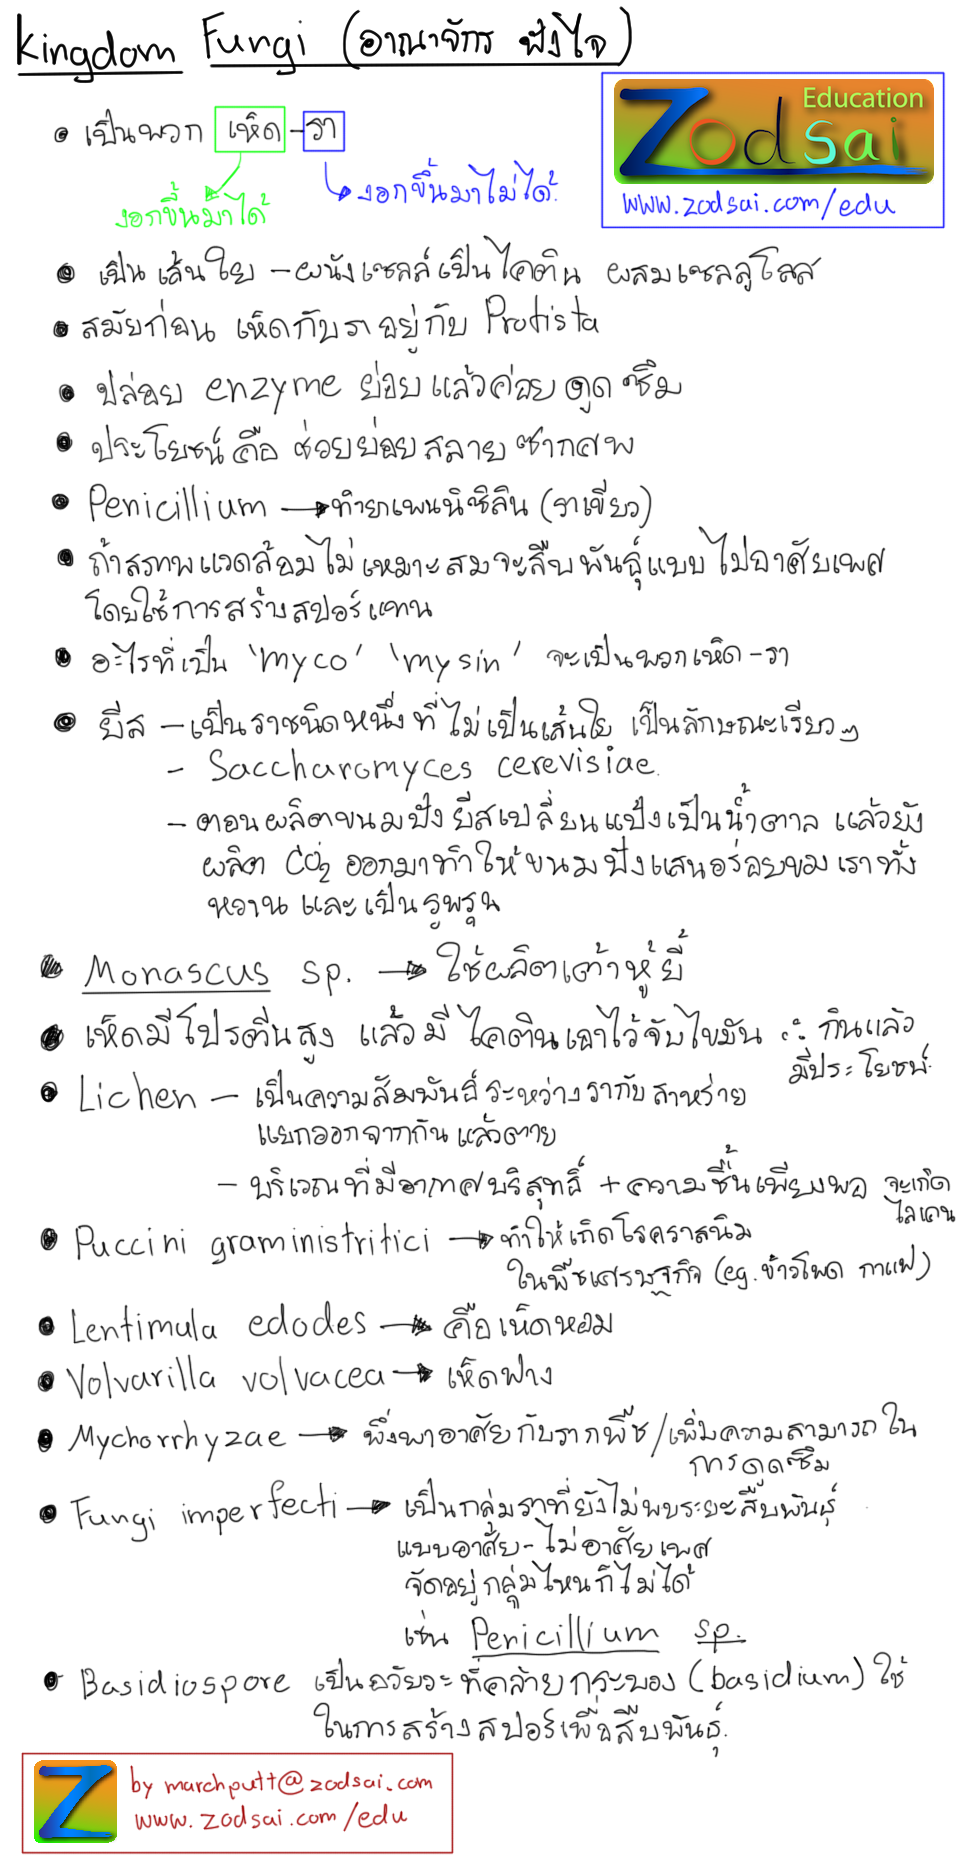 Kingdom Fungi (อาณาจักร ฟังไจ)
Zodsai Education
www.zodsai.com/edu
เป็นพวก เห็ด-รา
งอกขึ้นมาได้
งอกขึ้นมาไม่ได้
เป็นเส้นใย - ผนังเซลล์เป็นไคติน ผสมเซลลูโลส
สมัยก่อน เห็ดกับราอยู่กับ Protista
ปล่อย enzyme ย่อยแล้วค่อยดูดซึม
ประโยชน์คือ ช่วยย่อยสลายซากศพ
Penicillium → ทำยาเพนนิซิลิน (ราเขียว)
ถ้าสภาพแวดล้อมไม่เหมาะสมจะสืบพันธุ์แบบไม่อาศัยเพศ
โดยใช้การสร้างสปอร์แทน
อะไรที่เป็น 'myco' 'mysin' จะเป็นพวกเห็ด-รา
ยีส - เป็นราชนิดหนึ่งที่ไม่เป็นเส้นใย เป็นลักษณะเรียวๆ
- Saccharomyces cerevisiae.
- ตอนผลิตขนมปัง ยีสเปลี่ยนแป้งเป็นน้ำตาล แล้วยัง
ผลิต CO2 ออกมาทำให้ขนมปังแสนอร่อยของเราทั้ง
หวาน และเป็นรูพรุน
Monascus sp. → ใช้ผลิตเต้าหู้ยี้
เห็ดมีโปรตีนสูง แล้วมีไคตินเอาไว้จับไขมัน ∴ กินแล้ว
มีประโยชน์.
Lichen - เป็นความสัมพันธ์ระหว่างรากับสาหร่าย
แยกออกจากกันแล้วตาย
- บริเวณที่มีอากาศบริสุทธิ์ + ความชื้นเพียงพอ จะเกิด
ไลเคน
Puccini graministritici → ทำให้เกิดโรคราสนิม
ในพืชเศรษฐกิจ (eg. ข้าวโพด กาแฟ)
Lentimula edodes → คือเห็ดหอม
Volvarilla volvacea → เห็ดฟาง
Mychorrhyzae → พึ่งพาอาศัยกับรากพืช/เพิ่มความสามารถใน
การดูดซึม
Fungi imperfecti → เป็นกลุ่มราที่ยังไม่พบระยะสืบพันธุ์
แบบอาศัย-ไม่อาศัยเพศ
จัดอยู่กลุ่มไหนก็ไม่ได้
เช่น Penicillium sp.
Basidiospore เป็นอวัยวะที่คล้ายกระบอง (basidium) ใช้
ในการสร้างสปอร์เพื่อสืบพันธุ์.
Z
by marchputt@zodsai.com
www.zodsai.com/edu